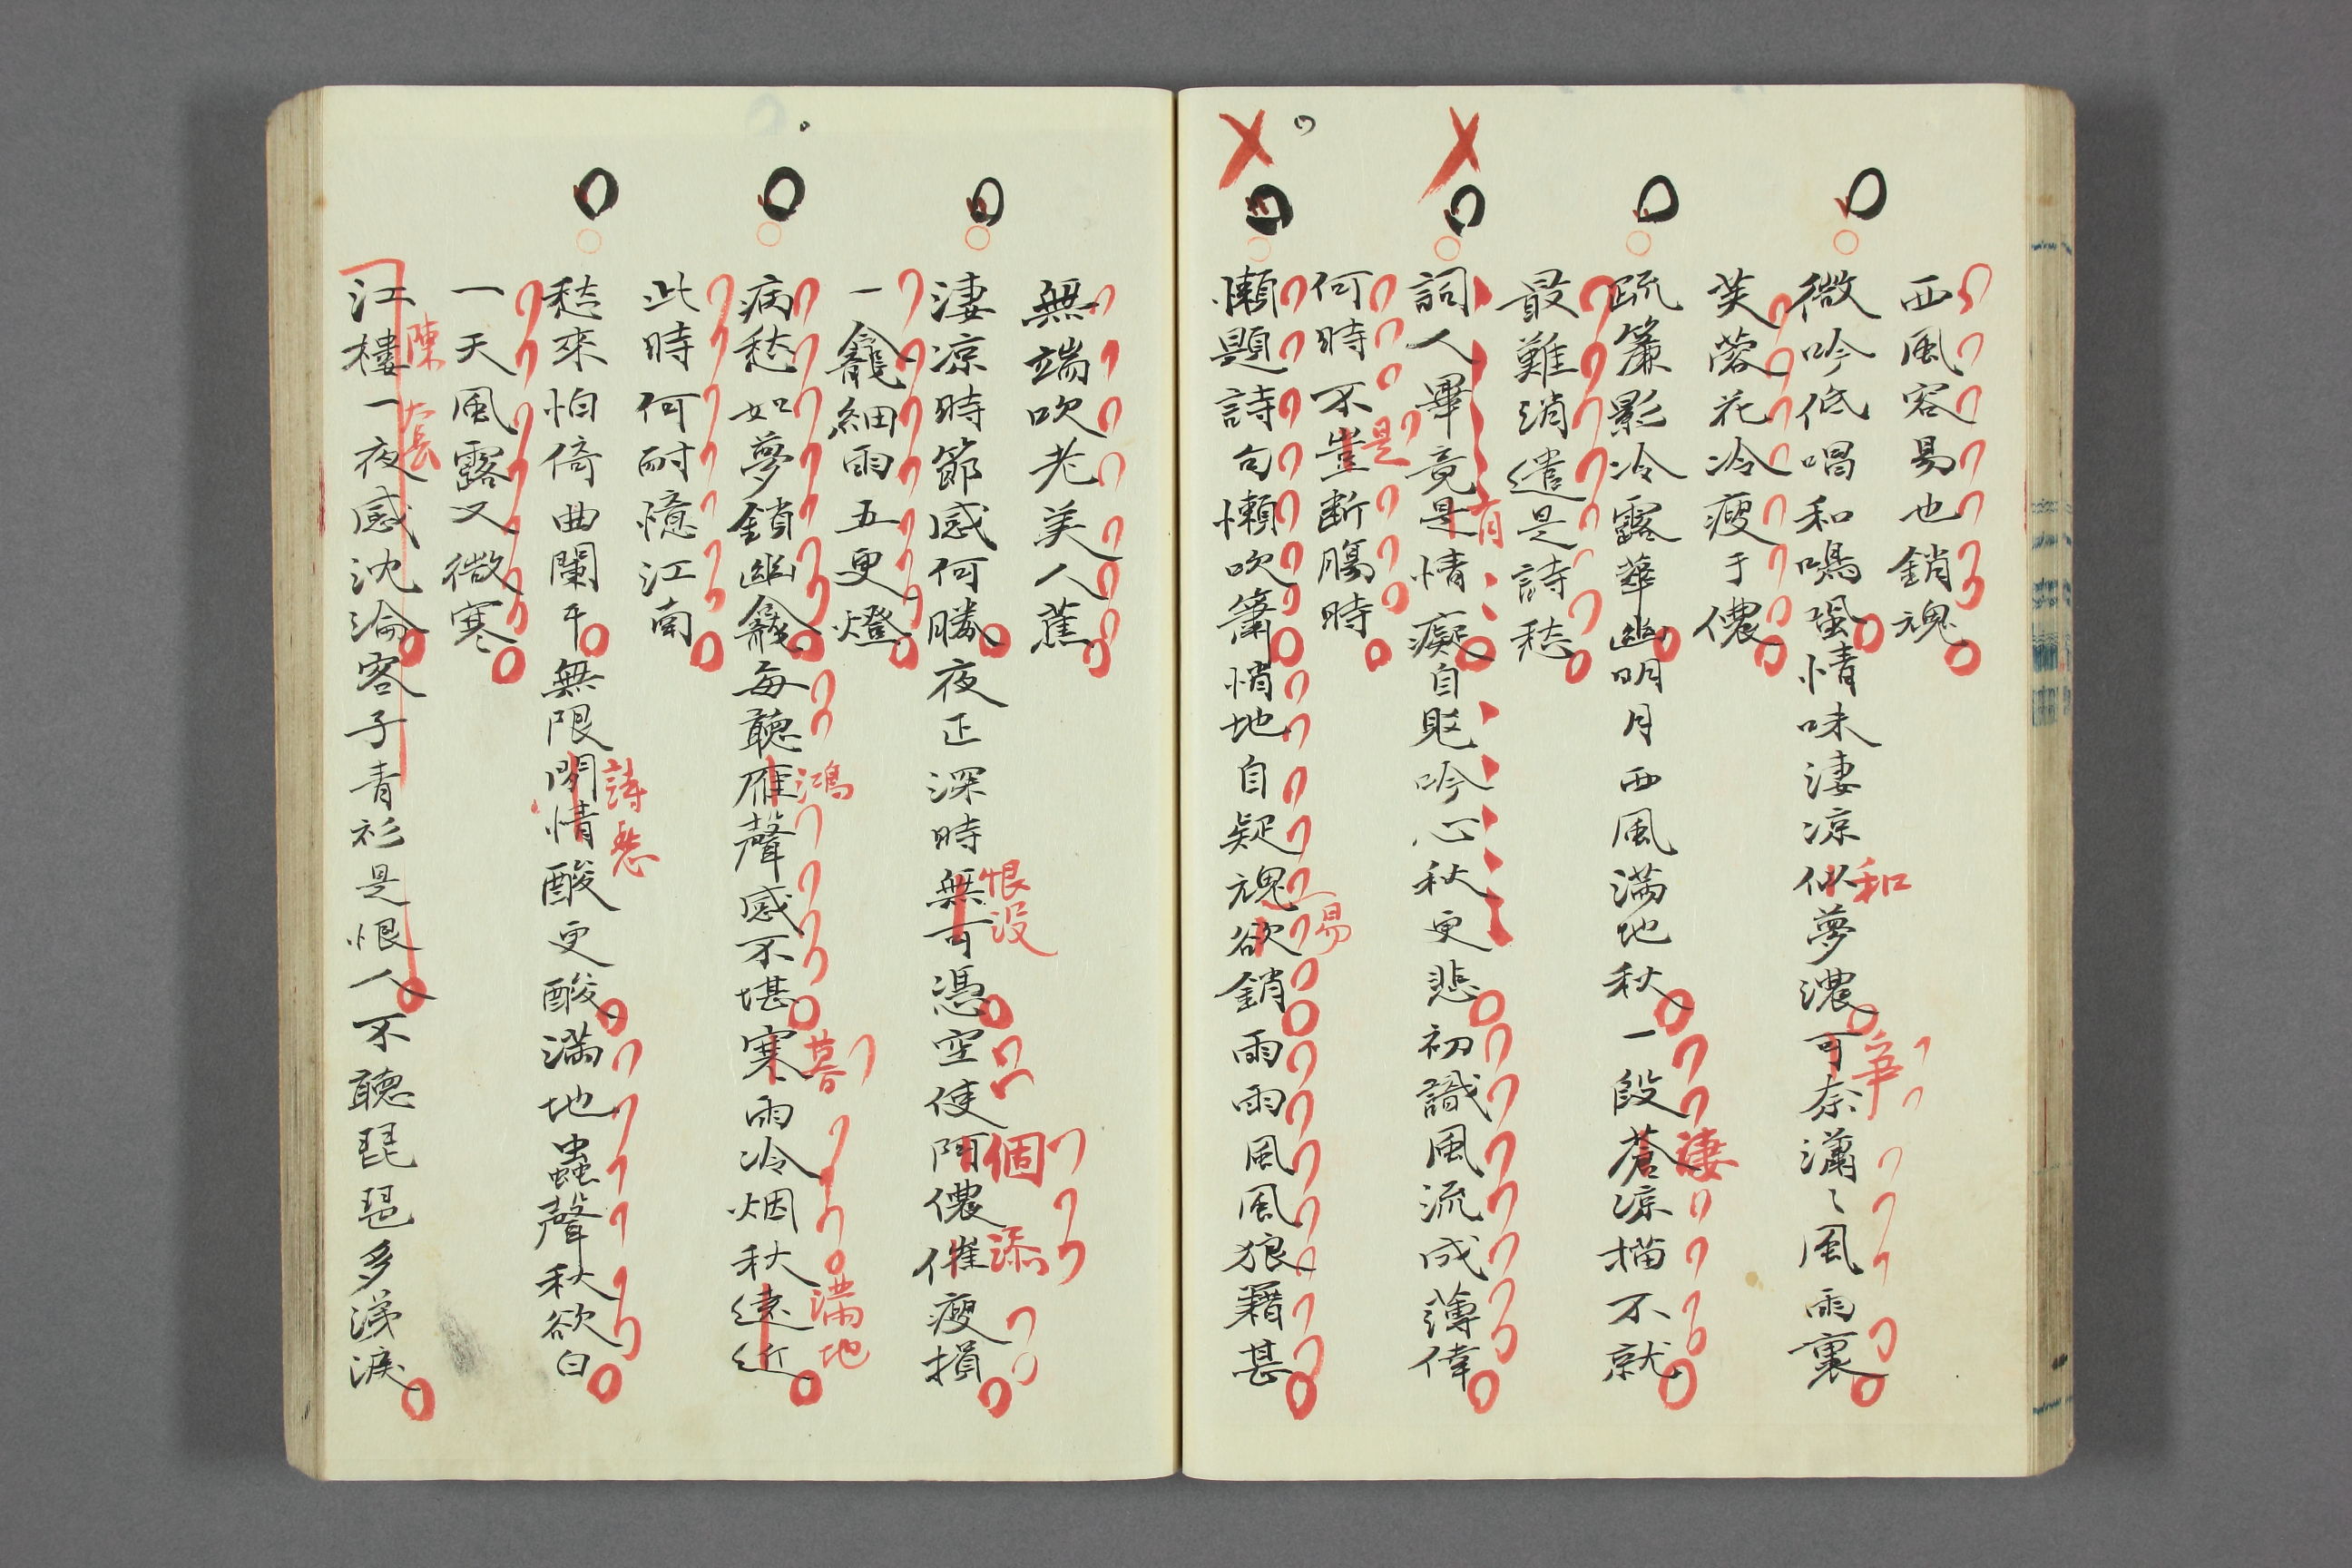 西風容易也銷魂
微吟低唱和鳴蛩情味淒涼似夢濃可奈瀟〻風雨裏
和
爭
芙蓉花冷瘦于儂
疏簾影冷露華幽明月西風滿地秋一段蒼涼描不就
淒
最難消遣是詩愁
詞人畢竟是情癡自貶吟心秋更悲初識風流成薄倖
有
何時不豈斷腸時
是
懶題詩句懶吹簫悄地自疑魂欲銷雨雨風風狼藉甚
易
無端吹老美人蕉
淒涼時節感何勝夜正深時無可憑空使阿儂催瘦損
恨沒
個
添
一龕細雨五更燈
病愁如夢鎖幽龕每聽雁聲感不堪寒雨冷烟秋遠近
鴻
暮
滿地
此時何耐憶江南
愁來怕倚曲闌干無限閒情酸更酸滿地蟲聲秋欲白
詩愁
一天風露又微寒
江樓一夜感沈淪客子青衫是恨人不聽琵琶多涕淚
陳